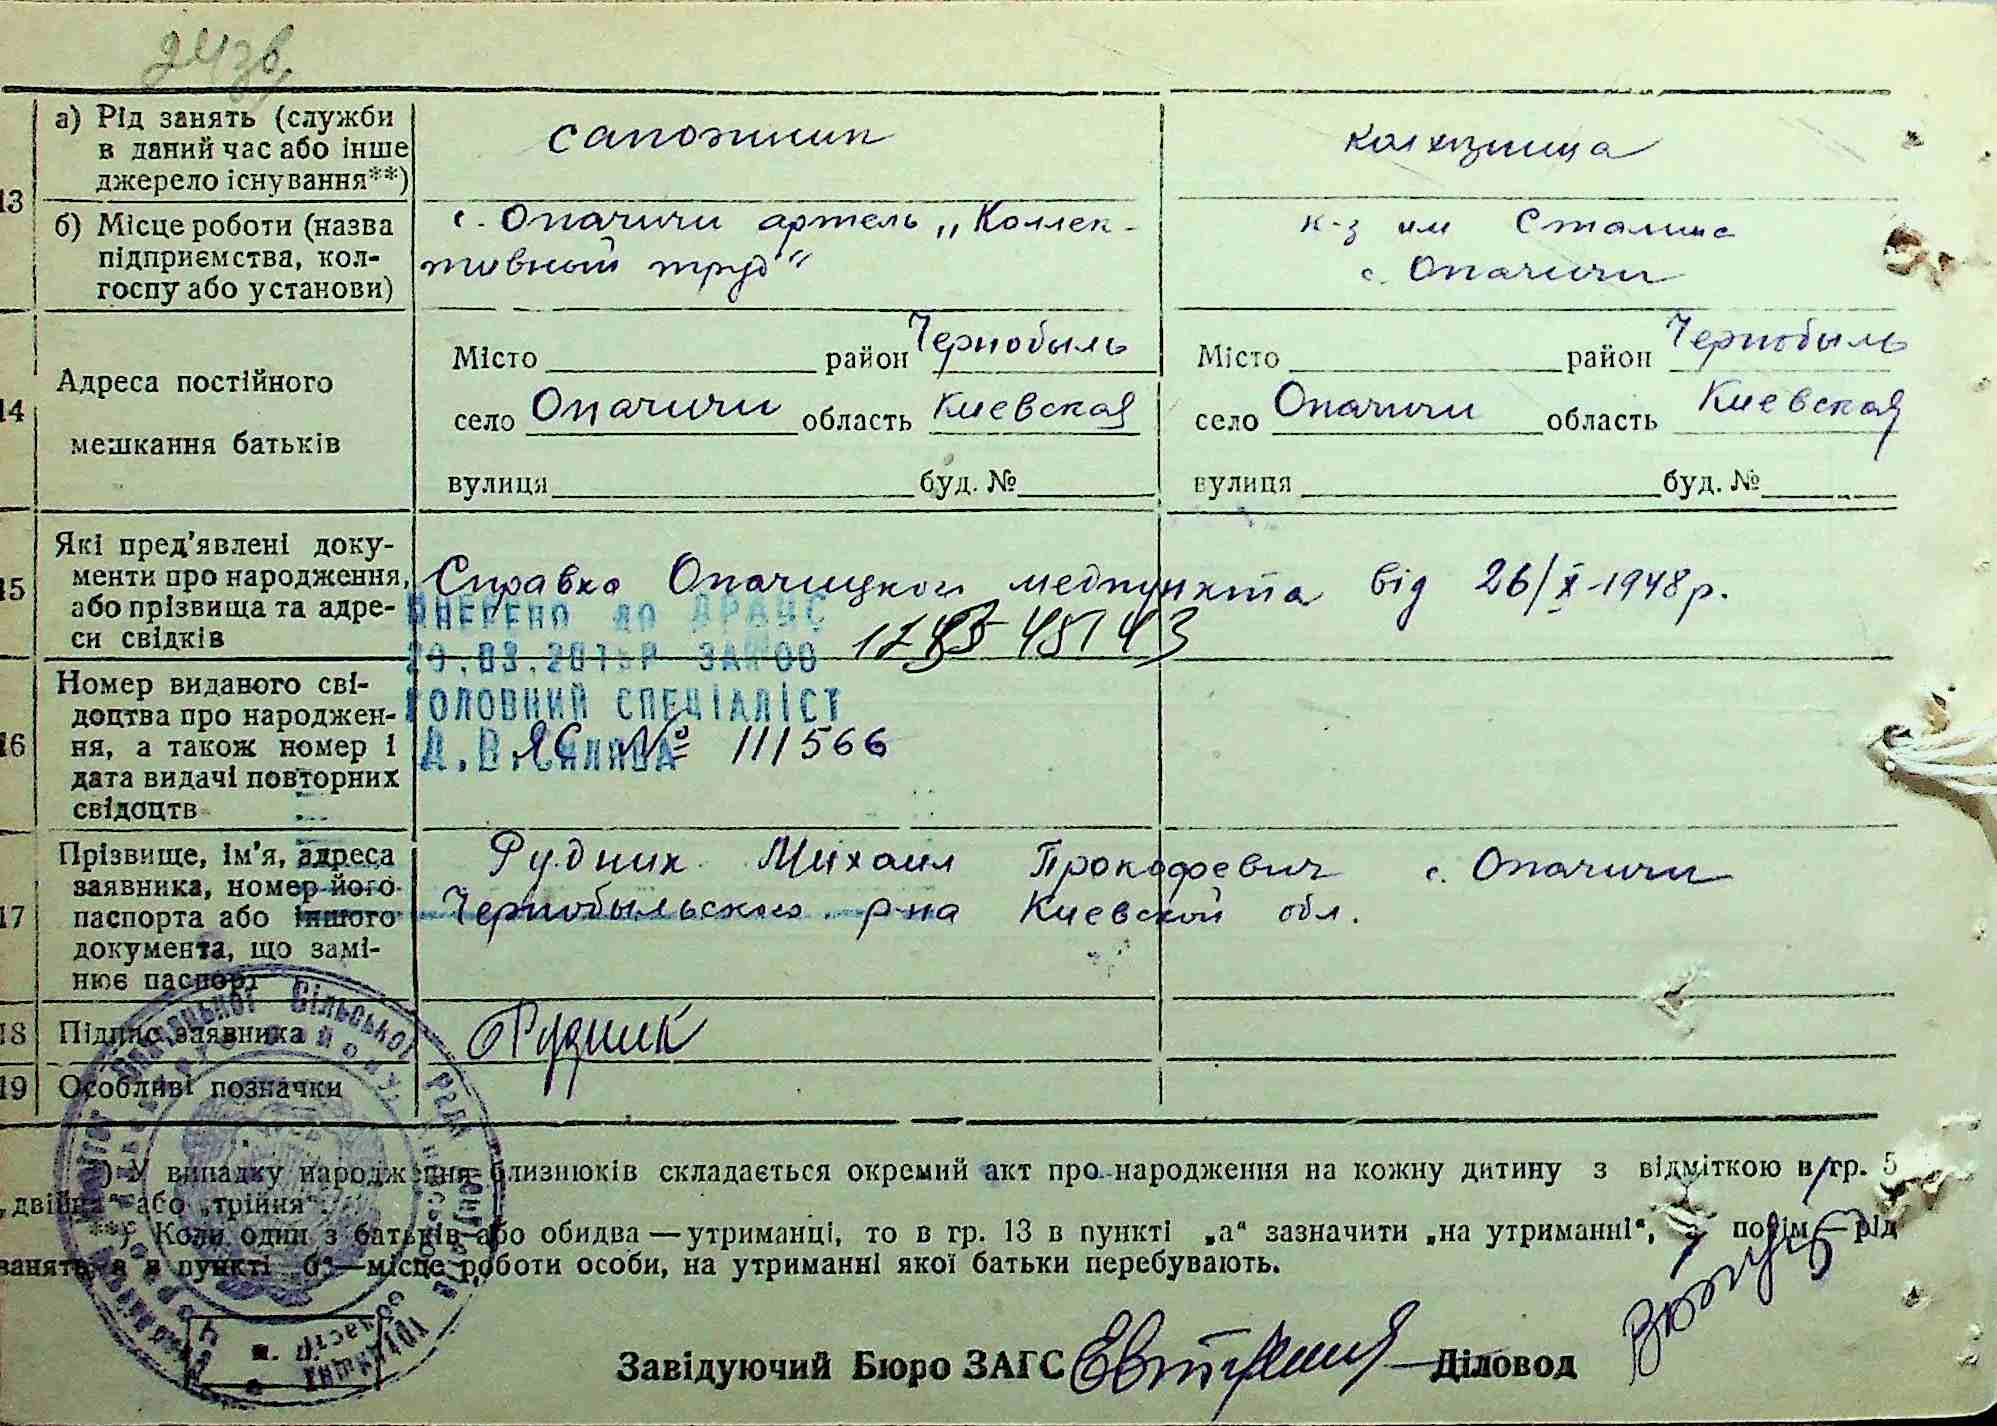 24зв.
13
а) Рід занять (служби
в даний час або інше
джерело існування**)
сапожник
колхозница
б) Місце роботи (назва
підприємства, кол-
госпу або установи)
с. Опачичи артель „Коллек-
тивный труд"
к-з им Сталина
с. Опачичи
14
Адреса постійного
мешкання батьків
Місто район Чернобыль
село Опачичи область Киевская
вулиця буд. №
Місто район Чернобыль
село Опачичи область Киевская
вулиця буд. №
15
Які пред'явлені доку-
менти про народження,
або прізвища та адре-
си свідків
Справка Опачицкого медпункта від 26/X-1948 р.
ВНЕСЕНО ДО ДРАЦС
ГОЛОВНИЙ СПЕЦІАЛІСТ
16
Номер виданого сві-
доцтва про народжен-
ня, а також номер і
дата видачі повторних
свідоцтв
ЯС № 111566
17
Прізвище, ім'я, адреса
заявника, номер його
паспорта або іншого
документа, що замі-
нює паспорт
Рудник Михаил Прокофевич с. Опачичи
Чернобыльского р-на Киевской обл.
18
Підпис заявника
Рудник
19
Особливі позначки
*) У випадку народження близнюків складається окремий акт про народження на кожну дитину з відміткою в гр. 5
„двійня" або „трійня".
**) Коли один з батьків або обидва — утриманці, то в гр. 13 в пункті „а" зазначити „на утриманні", а потім — рід
занять, а в пункті „б" — місце роботи особи, на утриманні якої батьки перебувають.
М. П.
Завідуючий Бюро ЗАГС Діловод